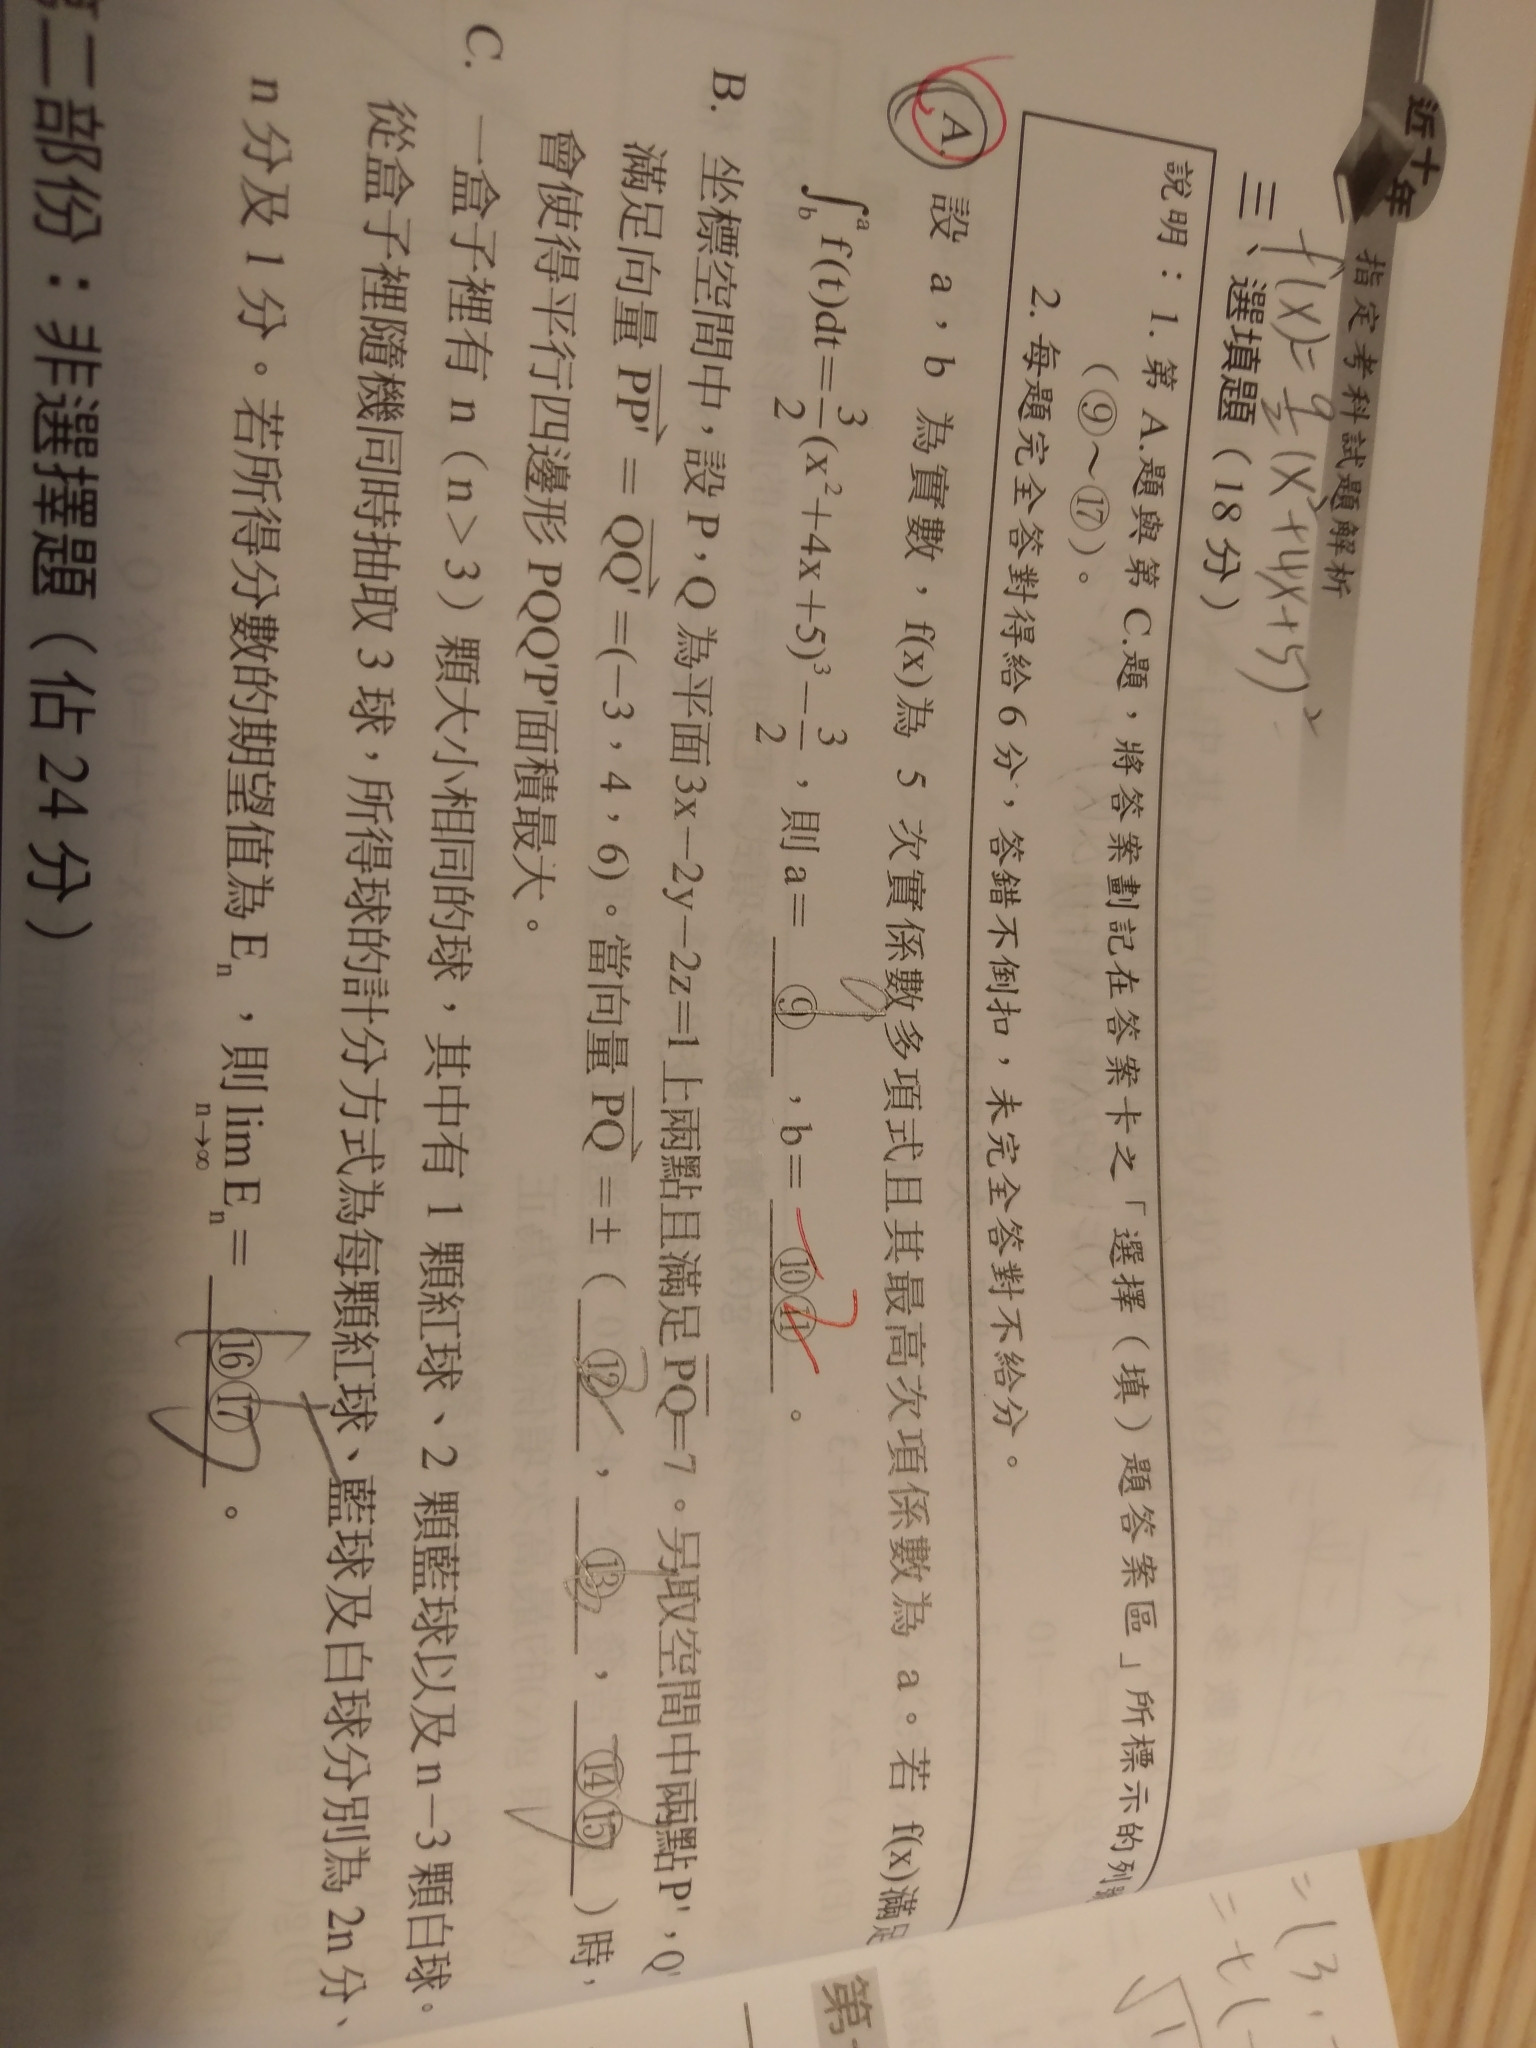 近十年 指定考科試題解析
f'(x)=9/2(x²+4x+5)²
三、選填題（18分）
說明：1. 第 A.題與第 C.題，將答案劃記在答案卡之「選擇（填）題答案區」所標示的列號
（⑨～⑰）。
2. 每題完全答對得給6分，答錯不倒扣，未完全答對不給分。
A. 設 a，b 為實數，f(x)為 5 次實係數多項式且其最高次項係數為 a。若 f(x)滿足
∫_b^a f(t)dt=3/2(x²+4x+5)³−3/2，則 a=⑨，b=⑩⑪。
B. 坐標空間中，設 P，Q 為平面 3x−2y−2z=1上兩點且滿足 PQ=7。另取空間中兩點P'，Q'
滿足向量 PP' = QQ'=(−3，4，6)。當向量 PQ =±（⑫，⑬，⑭⑮）時，
會使得平行四邊形 PQQ'P'面積最大。
C. 一盒子裡有 n（n>3）顆大小相同的球，其中有 1 顆紅球、2 顆藍球以及 n−3 顆白球。
從盒子裡隨機同時抽取 3 球，所得球的計分方式為每顆紅球、藍球及白球分別為 2n 分、
n 分及 1 分。若所得分數的期望值為 Eₙ，則 lim n→∞ Eₙ=⑯⑰。
第二部份：非選擇題（佔 24 分）